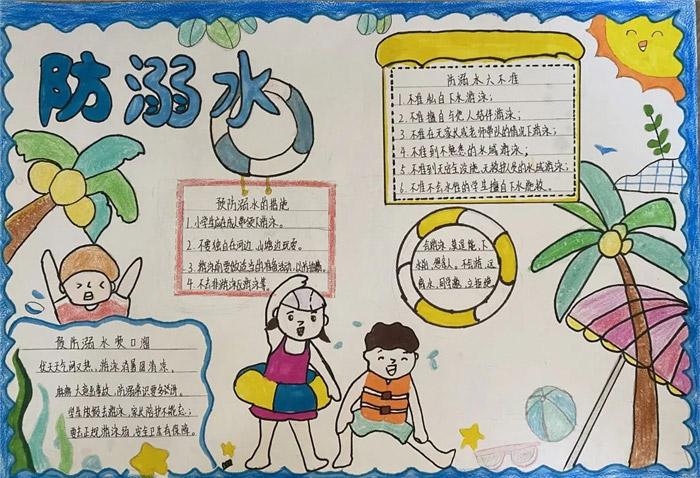 防溺水
防溺水六不准
1.不准私自下水游泳;
2.不准擅自与他人结伴游泳;
3.不准在无家长或老师带队的情况下游泳;
4.不准到不熟悉的水域游泳;
5.不准到无安全设施、无救护人员的水域游泳;
6.不准不会水性的学生擅自下水施救。
预防溺水的措施
1.小学生应在成人带领下游泳。
2.不要独自在河边、山塘边玩耍。
3.游泳前要做适当的准备活动,以防抽筋。
4.不去非游泳区游泳等。
去游泳,莫逞能,下
水前,
预防溺水要口溜
伏天天气闷又热,游泳消暑图清凉。
学生结伴去游泳,家长陪护不能忘;
要去正规游泳场,安全卫生有保障。